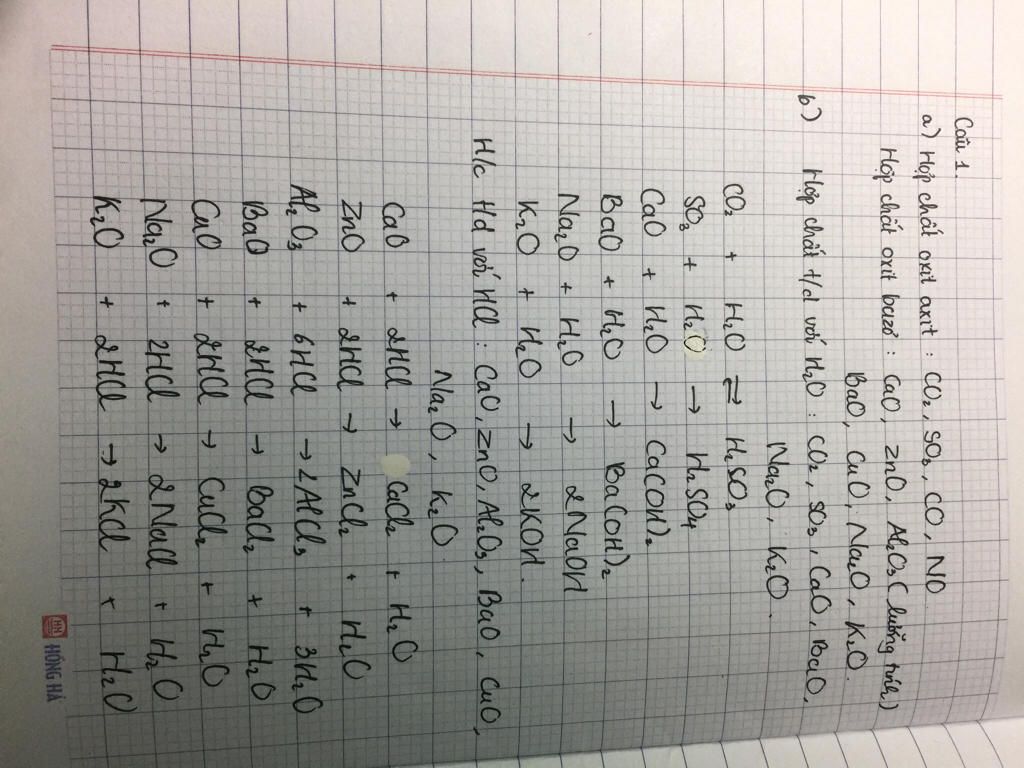 Câu 1.
a) Hợp chất oxit axit : CO₂, SO₃, CO, NO
Hợp chất oxit bazơ : CaO, ZnO, Al₂O₃ ( lưỡng tính )
BaO, CuO, Na₂O, K₂O.
b) Hợp chất t/d với H₂O : CO₂, SO₃, CaO, BaO,
Na₂O, K₂O.
CO₂ + H₂O ⇌ H₂SO₃
SO₃ + H₂O → H₂SO₄
CaO + H₂O → Ca(OH)₂
BaO + H₂O → Ba(OH)₂
Na₂O + H₂O → 2NaOH
K₂O + H₂O → 2KOH.
H/c t/d với HCl : CaO, ZnO, Al₂O₃, BaO, CuO,
Na₂O, K₂O
CaO + 2HCl → CaCl₂ + H₂O
ZnO + 2HCl → ZnCl₂ + H₂O
Al₂O₃ + 6HCl → 2AlCl₃ + 3H₂O
BaO + 2HCl → BaCl₂ + H₂O
CuO + 2HCl → CuCl₂ + H₂O
Na₂O + 2HCl → 2NaCl + H₂O
K₂O + 2HCl → 2KCl + H₂O
HỒNG HÀ